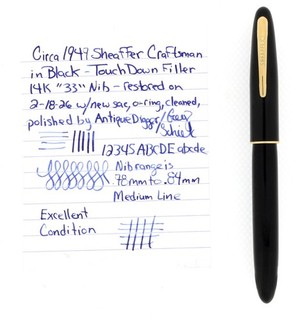 Circa 1949 Sheaffer Craftsman
in Black - TouchDown Filler
14K "33" Nib - restored on
2-18-26 w/new sac, o-ring, cleaned,
polished by AntiqueDigger/
12345 ABCDE abcde
Nib range is
.78mm to .84mm
Medium Line
Excellent
Condition